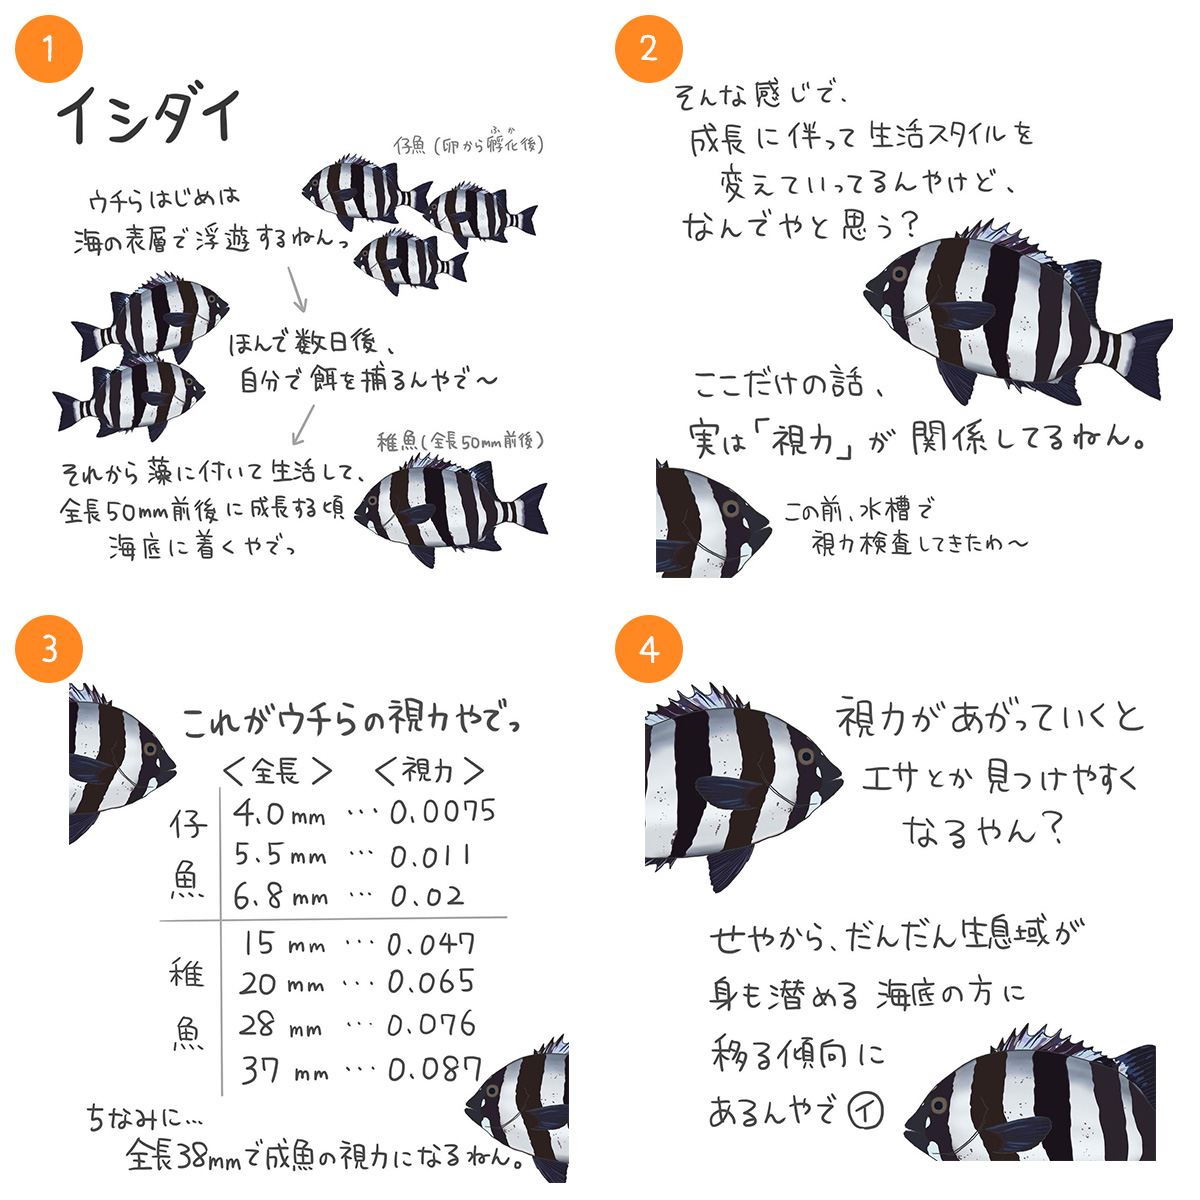 1
イシダイ
仔魚(卵から孵化後)
ふか
ウチらはじめは
海の表層で浮遊するねんっ
ほんで数日後、
自分で餌を捕るんやで～
稚魚(全長50mm前後)
それから藻に付いて生活して、
全長50mm前後に成長する頃
海底に着くやでっ
2
そんな感じで、
成長に伴って生活スタイルを
変えていってるんやけど、
なんでやと思う?
ここだけの話、
実は「視力」が関係してるねん。
この前、水槽で
視力検査してきたわ～
3
これがウチらの視力やでっ
<全長> <視力>
仔魚
4.0mm…0.0075
5.5mm…0.011
6.8mm…0.02
稚魚
15mm…0.047
20mm…0.065
28mm…0.076
37mm…0.087
ちなみに…
全長38mmで成魚の視力になるねん。
4
視力があがっていくと
エサとか見つけやすく
なるやん?
せやから、だんだん生息域が
身も潜める海底の方に
移る傾向に
あるんやで㋑